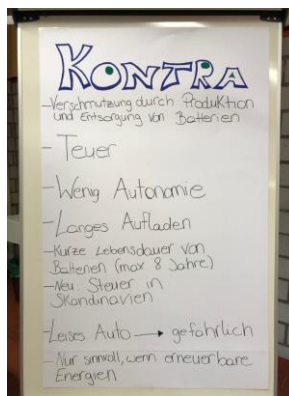 KONTRA
- Verschmutzung durch Produktion
und Entsorgung von Batterien
- Teuer
- Wenig Autonomie
- Langes Aufladen
- Kurze Lebensdauer von
Batterien (max 8 Jahre)
- Neu: Steuer in
Skandinavien
- Leises Auto → gefährlich
- Nur sinnvoll, wenn erneuerbare
Energien